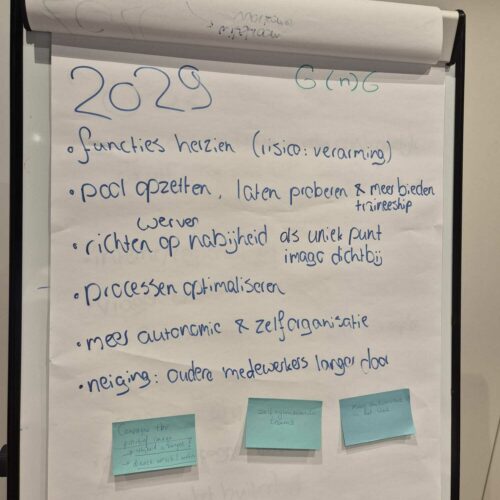 2029
G (n) G
• functies herzien (risico: verarming)
• pool opzetten, laten proberen & meer bieden
traineeship
werven
• richten op nabijheid als uniek punt
imago dichtbij
• processen optimaliseren
• meer autonomie & zelforganisatie
• neiging: oudere medewerkers langer door
teams